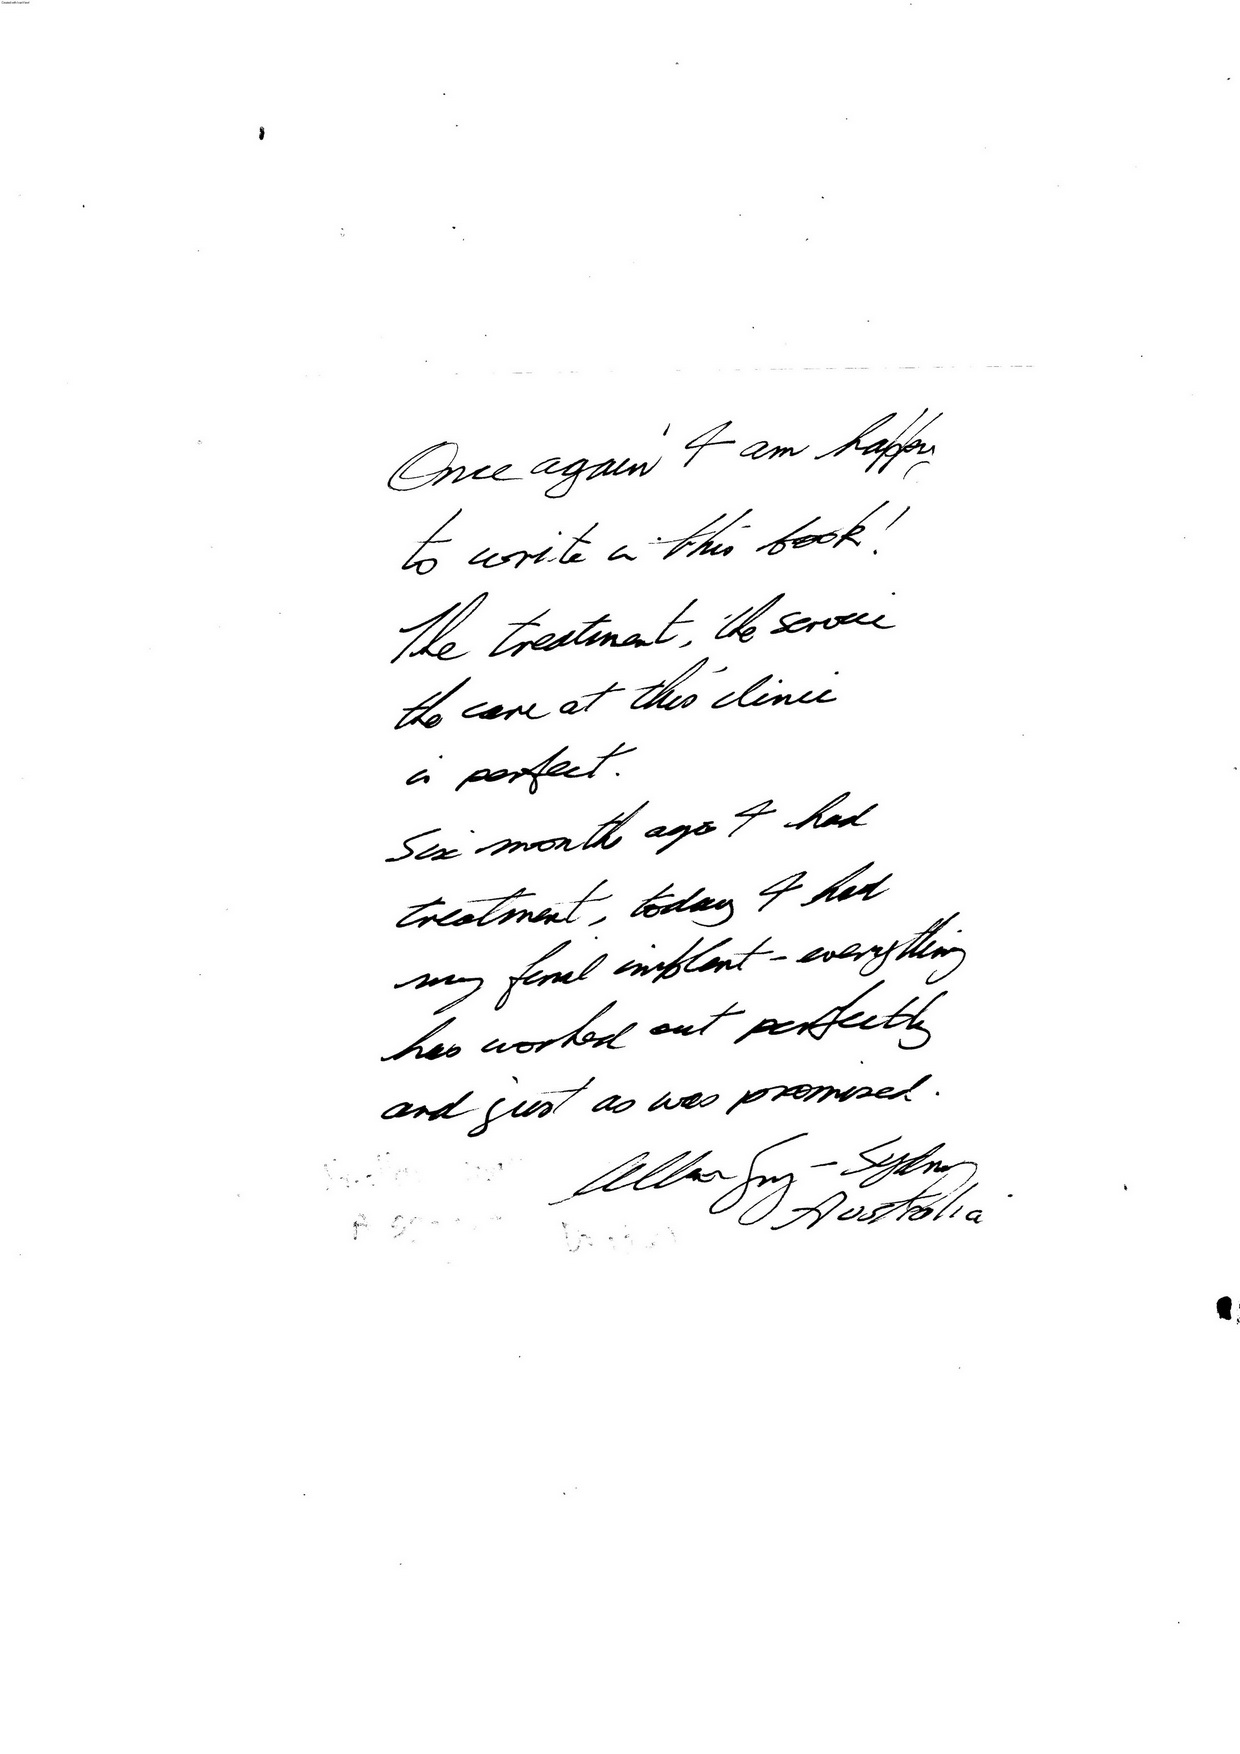 Once again I am happy
to write in this book!
The treatment, the service
the care at this clinic
is perfect.
Six month ago I had
treatment, today I had
my final implant - everything
has worked out perfectly
and just as was promised.
Allan - Sydney
Australia